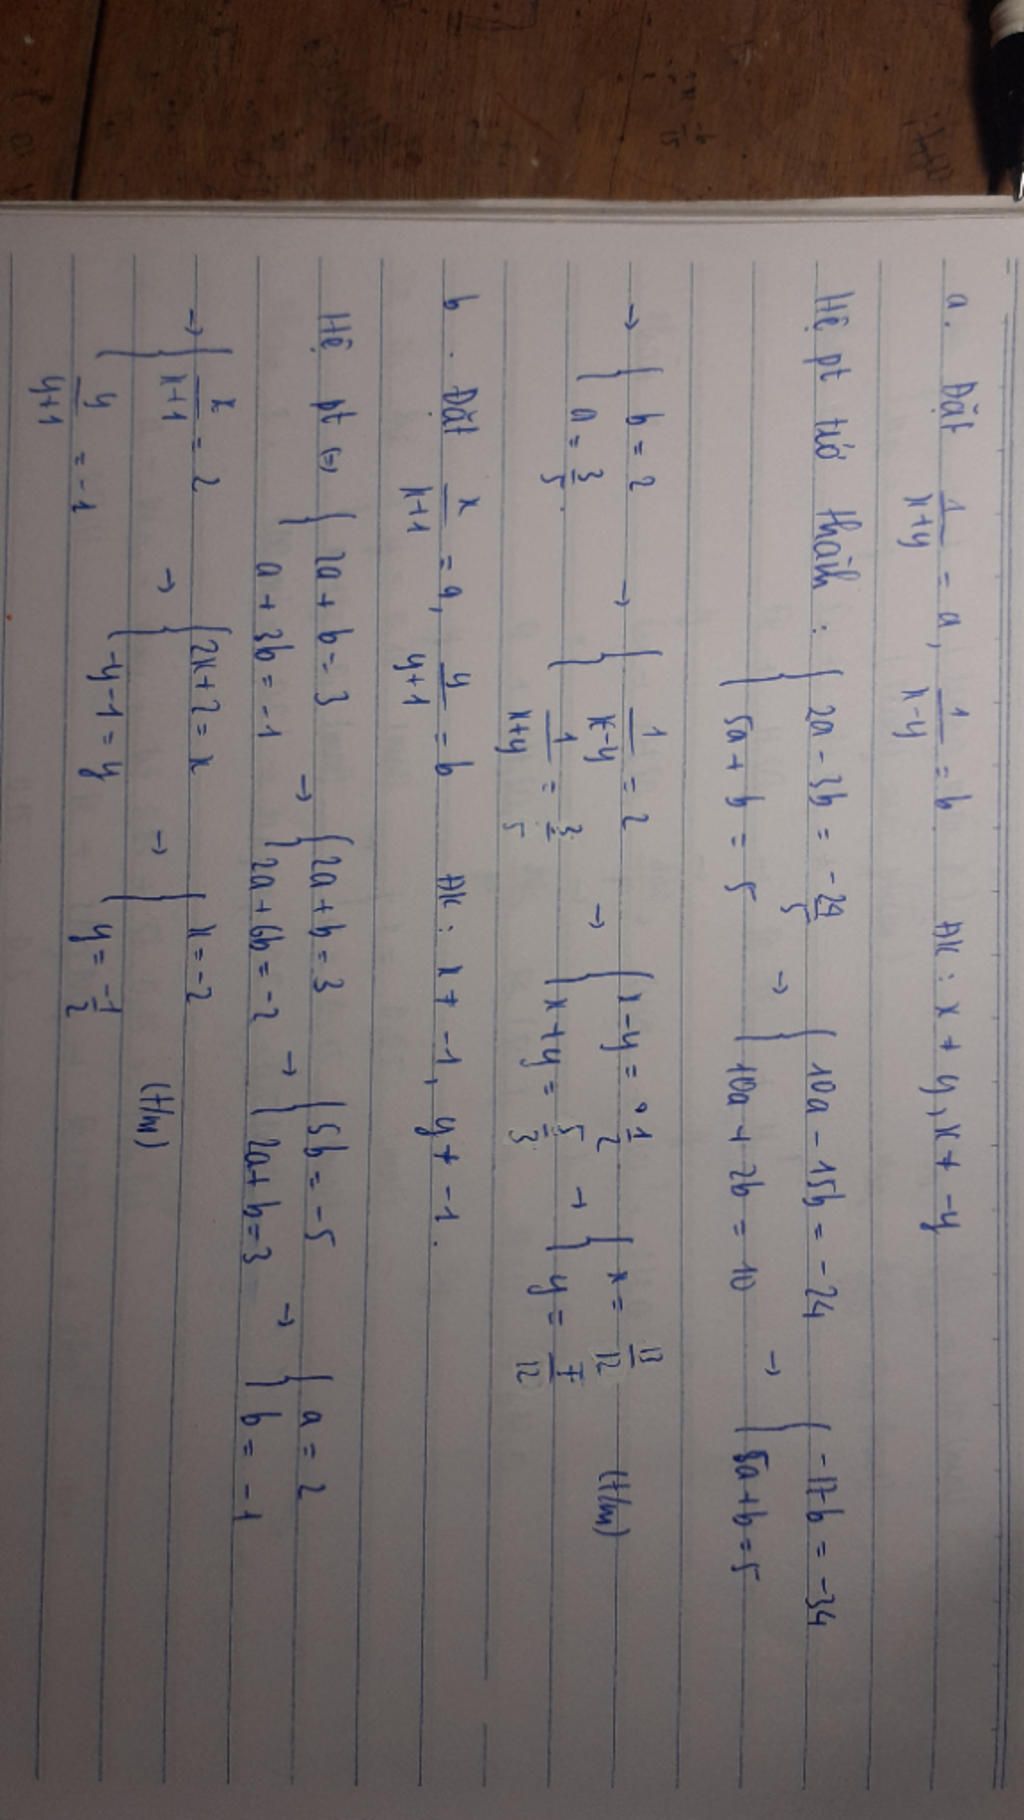 a. Đặt 1/(x+y) = a, 1/(x-y) = b ĐK: x ≠ y, x ≠ -y
Hệ pt trở thành: { 2a - 3b = -24/5 ; 5a + b = 5 → { 10a - 15b = -24 ; 10a + 2b = 10 → { -17b = -34 ; 5a + b = 5
→ { b = 2 ; a = 3/5 . → { 1/(x-y) = 2 ; 1/(x+y) = 3/5 → { x-y = 1/2 ; x+y = 5/3 → { x = 13/12 ; y = 7/12 (t/m)
b. Đặt x/(x+1) = a, y/(y+1) = b ĐK: x ≠ -1, y ≠ -1.
Hệ pt (=) { 2a + b = 3 ; a + 3b = -1 → { 2a + b = 3 ; 2a + 6b = -2 → { 5b = -5 ; 2a + b = 3 → { a = 2 ; b = -1
→ { x/(x+1) = 2 ; y/(y+1) = -1 → { 2x + 2 = x ; -y - 1 = y → { x = -2 ; y = -1/2 (t/m)